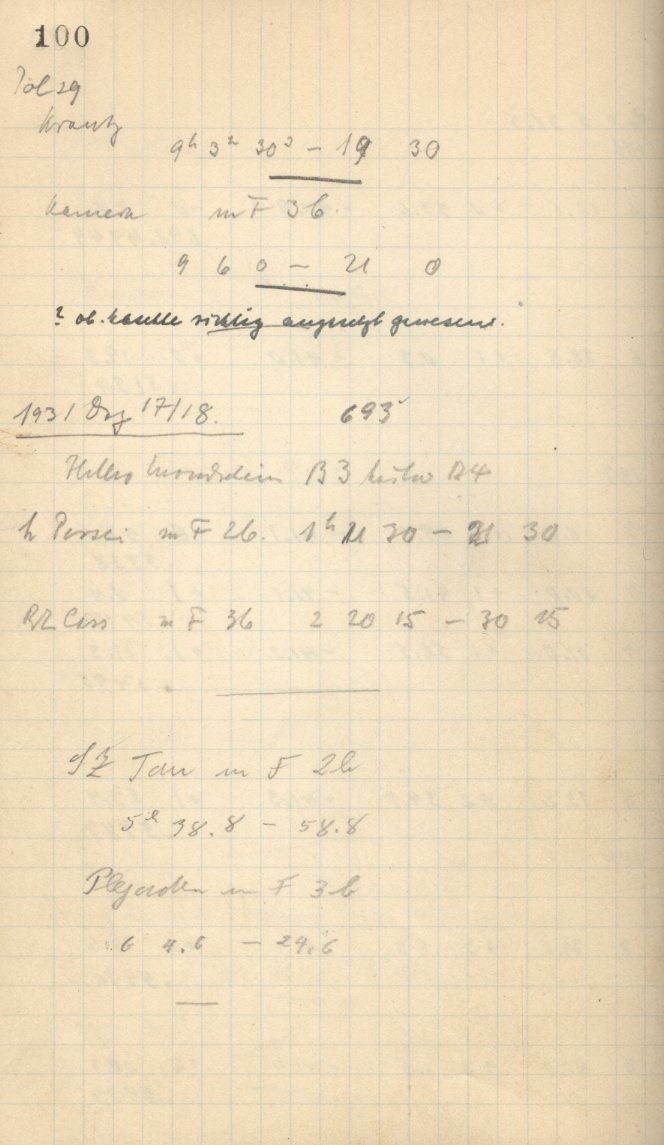 100
9h 3m 30s – 19 30
Kamera m F 3b.
9 6 0 – 21 0
? ob. richtig angesetzt gewesen.
1931 Dez 17/18. 693
Heller Mondschein B3 B4
h Persei m F 2b. 1h 11 30 – 21 30
RZ Cass m F 3b 2 20 15 – 30 15
SZ Tau m F 2b
5h 38.8 – 58.8
Plejaden m F 3b
6 4.6 – 24.6